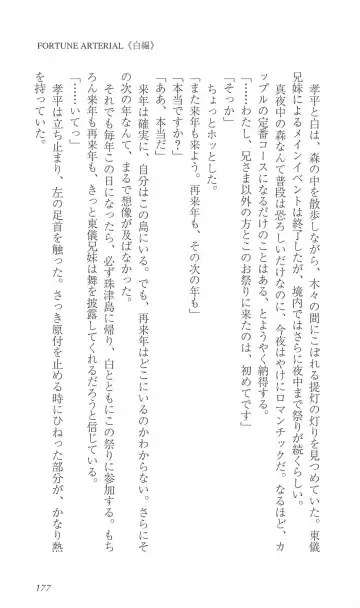 FORTUNE ARTERIAL《白編》
孝平と白は、森の中を散歩しながら、木々の間にこぼれる提灯の灯りを見つめていた。東儀
兄妹によるメインイベントは終了したが、境内ではさらに夜中まで祭りが続くらしい。
真夜中の森なんて普段は恐ろしいだけなのに、今夜はやけにロマンチックだ。なるほど、カ
ップルの定番コースになるだけのことはある、とようやく納得する。
「……わたし、兄さま以外の方とこのお祭りに来たのは、初めてです」
「そっか」
ちょっとホッとした。
「また来年も来よう。再来年も、その次の年も」
「本当ですか？」
「ああ、本当だ」
来年は確実に、自分はこの島にいる。でも、再来年はどこにいるのかわからない。さらにそ
の次の年なんて、まるで想像が及ばなかった。
それでも毎年この日になったら、必ず珠津島に帰り、白とともにこの祭りに参加する。もち
ろん来年も再来年も、きっと東儀兄妹は舞を披露してくれるだろうと信じている。
「……いてっ」
孝平は立ち止まり、左の足首を触った。さっき原付を止める時にひねった部分が、かなり熱
を持っていた。
177